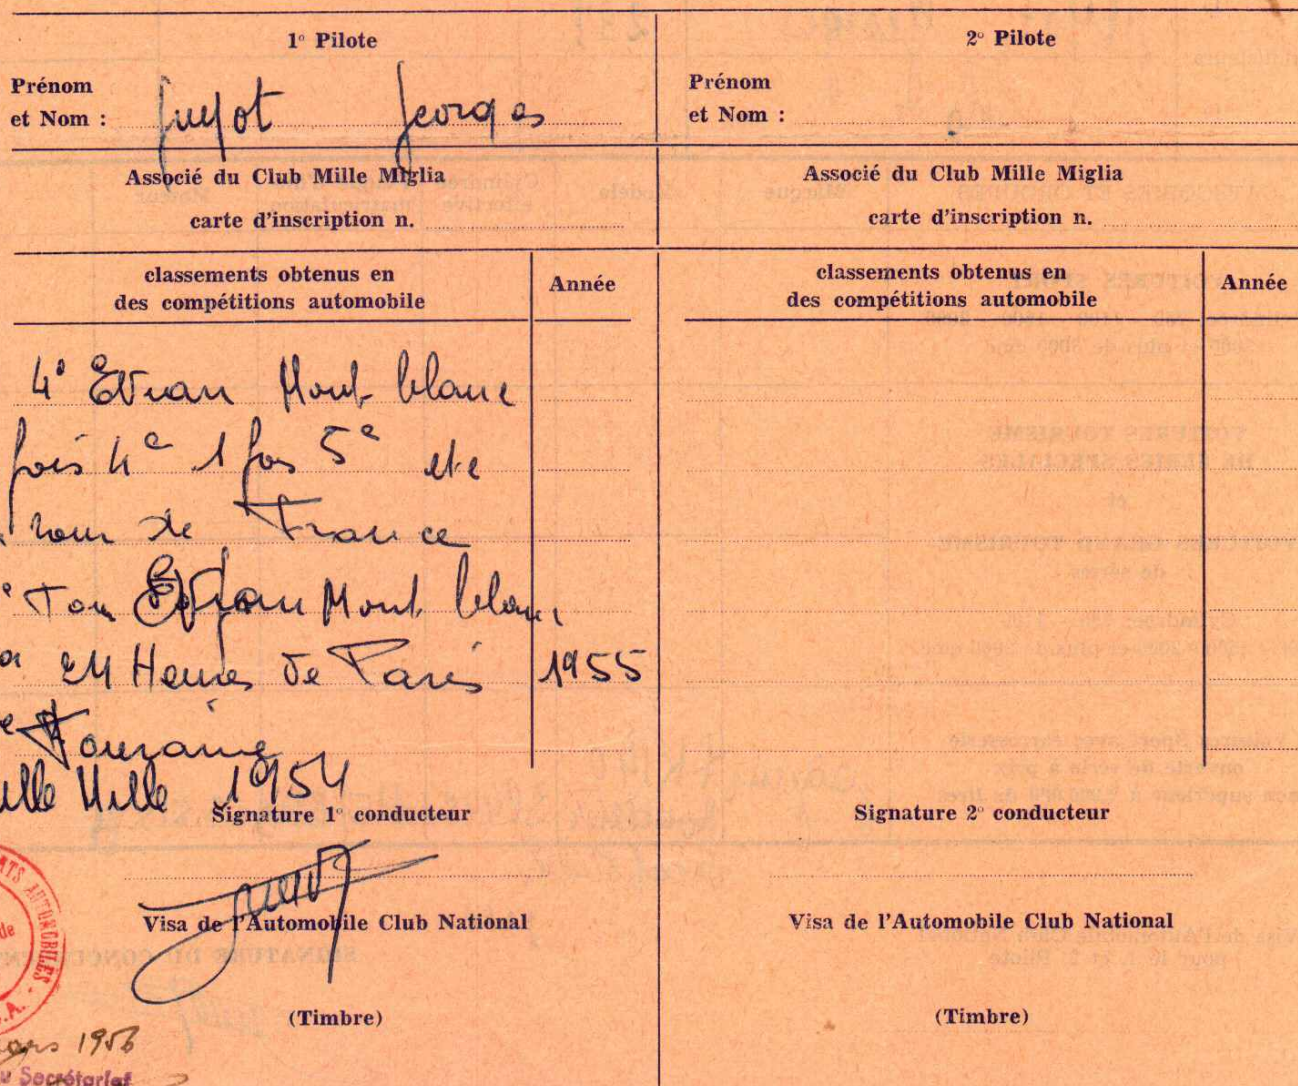 1º Pilote
Prénom
et Nom : Guyot Georges
Associé du Club Mille Miglia
carte d'inscription n.
classements obtenus en
des compétitions automobile
Année
4º Evian Mont blanc
fois 4e 1 fois 5e
de France
Tour Mont blanc
24 Heures de Paris 1955
Touraine
Mille 1954
Signature 1º conducteur
Visa de l'Automobile Club National
(Timbre)
AUTOMOBILES
de
1956
Secrétariat
2º Pilote
Prénom
et Nom :
Associé du Club Mille Miglia
carte d'inscription n.
classements obtenus en
des compétitions automobile
Année
Signature 2º conducteur
Visa de l'Automobile Club National
(Timbre)